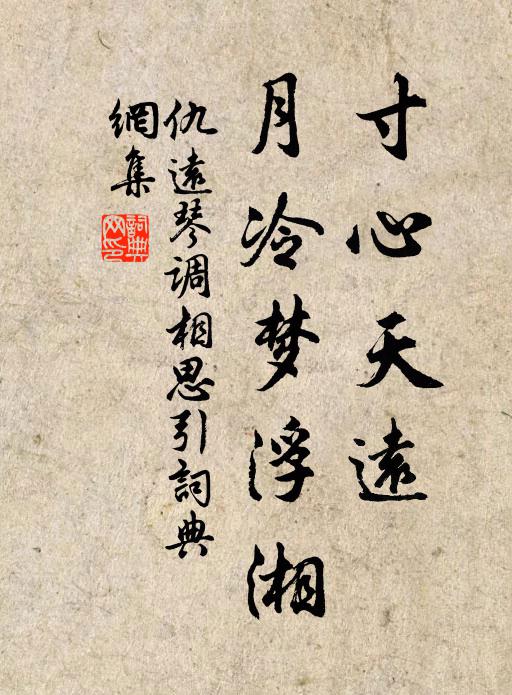 寸心天遠
月冷梦浮湘
仇遠琴調相思引詞典
網集
詞典网印